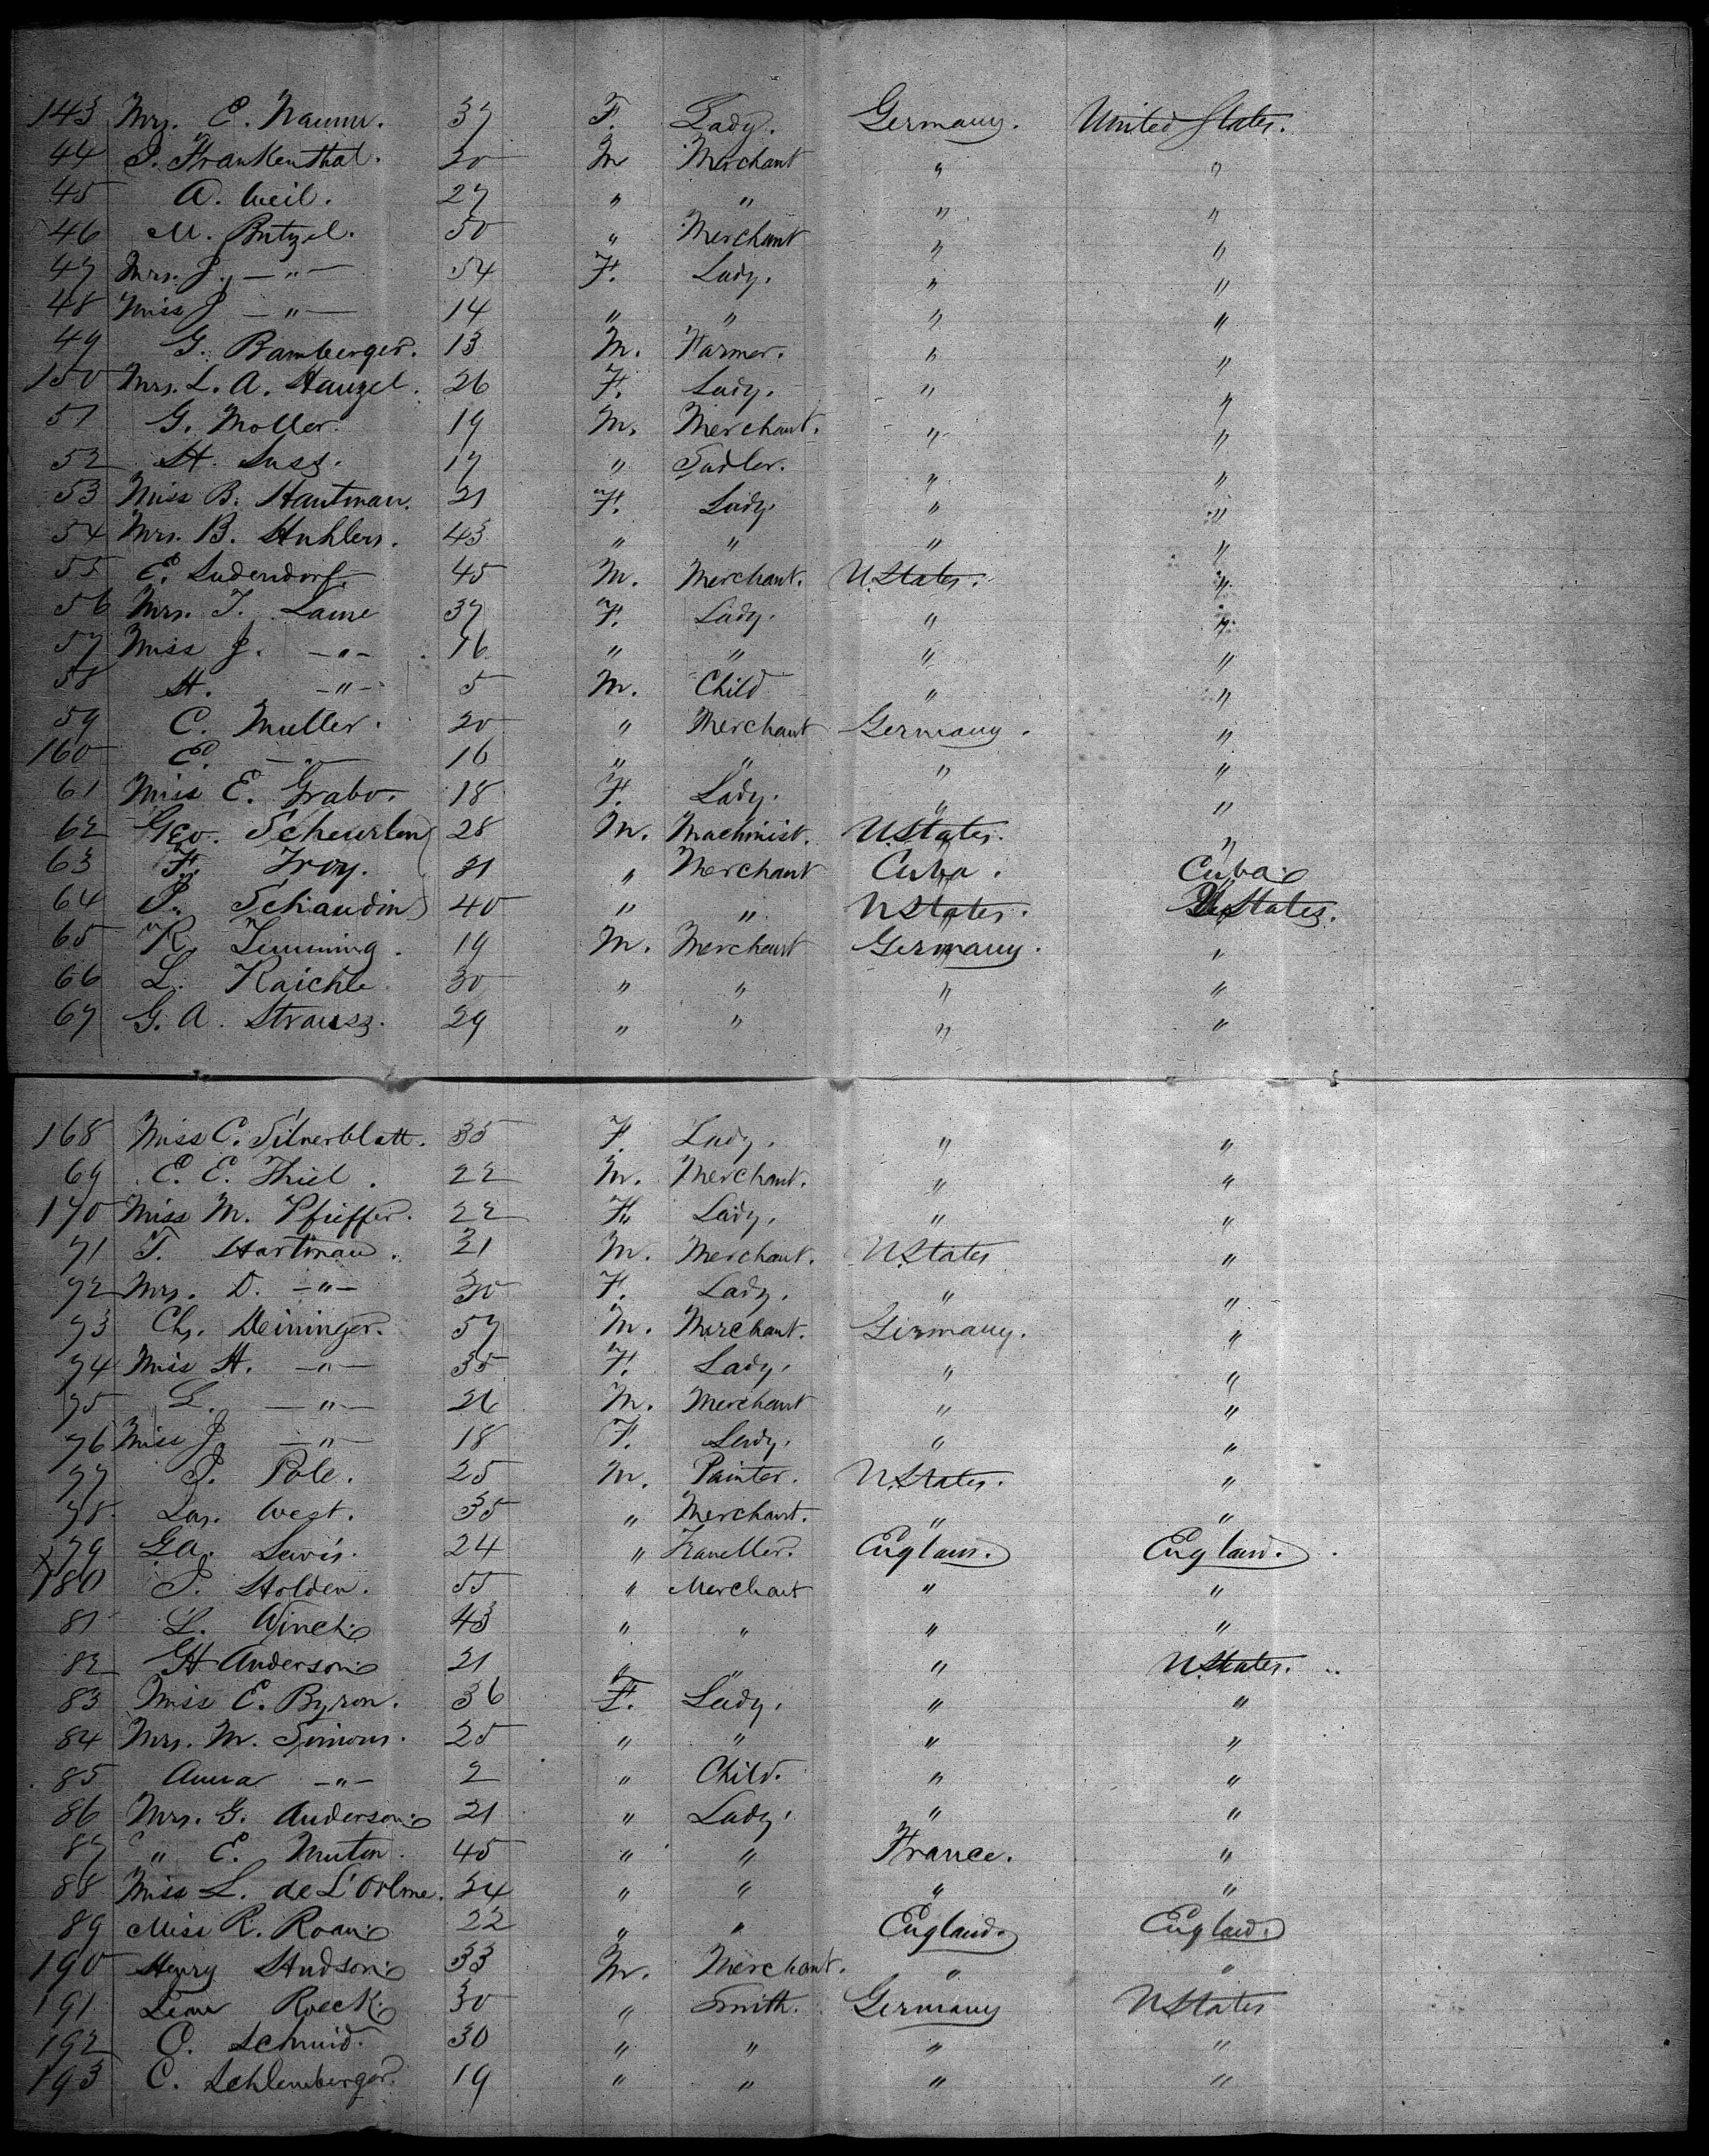 143 Mrs. C. Naumr. 37 F. Lady. Germany. United States.
44 S. Frankenthal. 30 M Merchant " "
45 A. Weil. 27 " " " "
46 M. Butzel. 50 " Merchant " "
47 Mrs. J. —"— 54 F. Lady. " "
48 Miss J —"— 14 " " " "
49 G. Bamberger. 13 M. Farmer. " "
150 Mrs. L. A. Hanzel. 26 F. Lady. " "
51 G. Moller. 19 M. Merchant. " "
52 H. Suss. 17 " Sadler. " "
53 Miss B. Hautman. 21 F. Lady. " "
54 Mrs. B. Stuhlers. 43 " " " "
55 E. Ludendorf. 45 M. Merchant. U.States. "
56 Mrs. T. Laure 37 F. Lady. " "
57 Miss J. —"— 16 " " " "
58 H. —"— 5 M. Child " "
59 C. Muller. 20 " Merchant Germany. "
160 E. —"— 16 " " " "
61 Miss E. Grabo. 18 F. Lady. " "
62 Geo. Scheurlen 28 M. Machinist. U.States. "
63 F. Troy. 31 " Merchant Cuba. Cuba
64 P. Schaudin 40 " " U.States. U.States.
65 R. Timming. 19 M. Merchant Germany. "
66 L. Raichle 30 " " " "
67 G. A. Strauss. 29 " " " "
168 Miss C. Silverblatt. 35 F. Lady. " "
69 E. E. Thiel. 22 M. Merchant. " "
170 Miss M. Pfieffer. 22 F. Lady. " "
71 T. Hartman. 31 M. Merchant. U.States "
72 Mrs. D. —"— 30 F. Lady. " "
73 Ch. Deininger. 57 M. Merchant. Germany. "
74 Miss H. —"— 35 F. Lady. " "
75 L. —"— 26 M. Merchant " "
76 Miss J. —"— 18 F. Lady. " "
77 J. Pole. 25 M. Painter. U.States. "
78. Las. West. 35 " Merchant. " "
79 Ga. Lewis. 24 " Traveller. England. England.
180 J. Holden. 55 " Merchant " "
81 L. Winch. 43 " " " "
82 GH Anderson. 21 " " " U.States.
83 Miss E. Byron. 36 F. Lady. " "
84 Mrs. M. Simons. 25 " " " "
85 Anna —"— 2 " Child. " "
86 Mrs. G. Anderson. 21 " Lady. " "
87 " E. Muton. 45 " " France. "
88 Miss L. de L'Orlme. 24 " " " "
89 Miss R. Roan. 22 " " England. England.
190 Henry Hudson. 33 M. Merchant. " "
191 Leon Roeck. 30 " Smith. Germany U.States
192 O. Schmid. 30 " " " "
193 C. Schlemberger. 19 " " " "